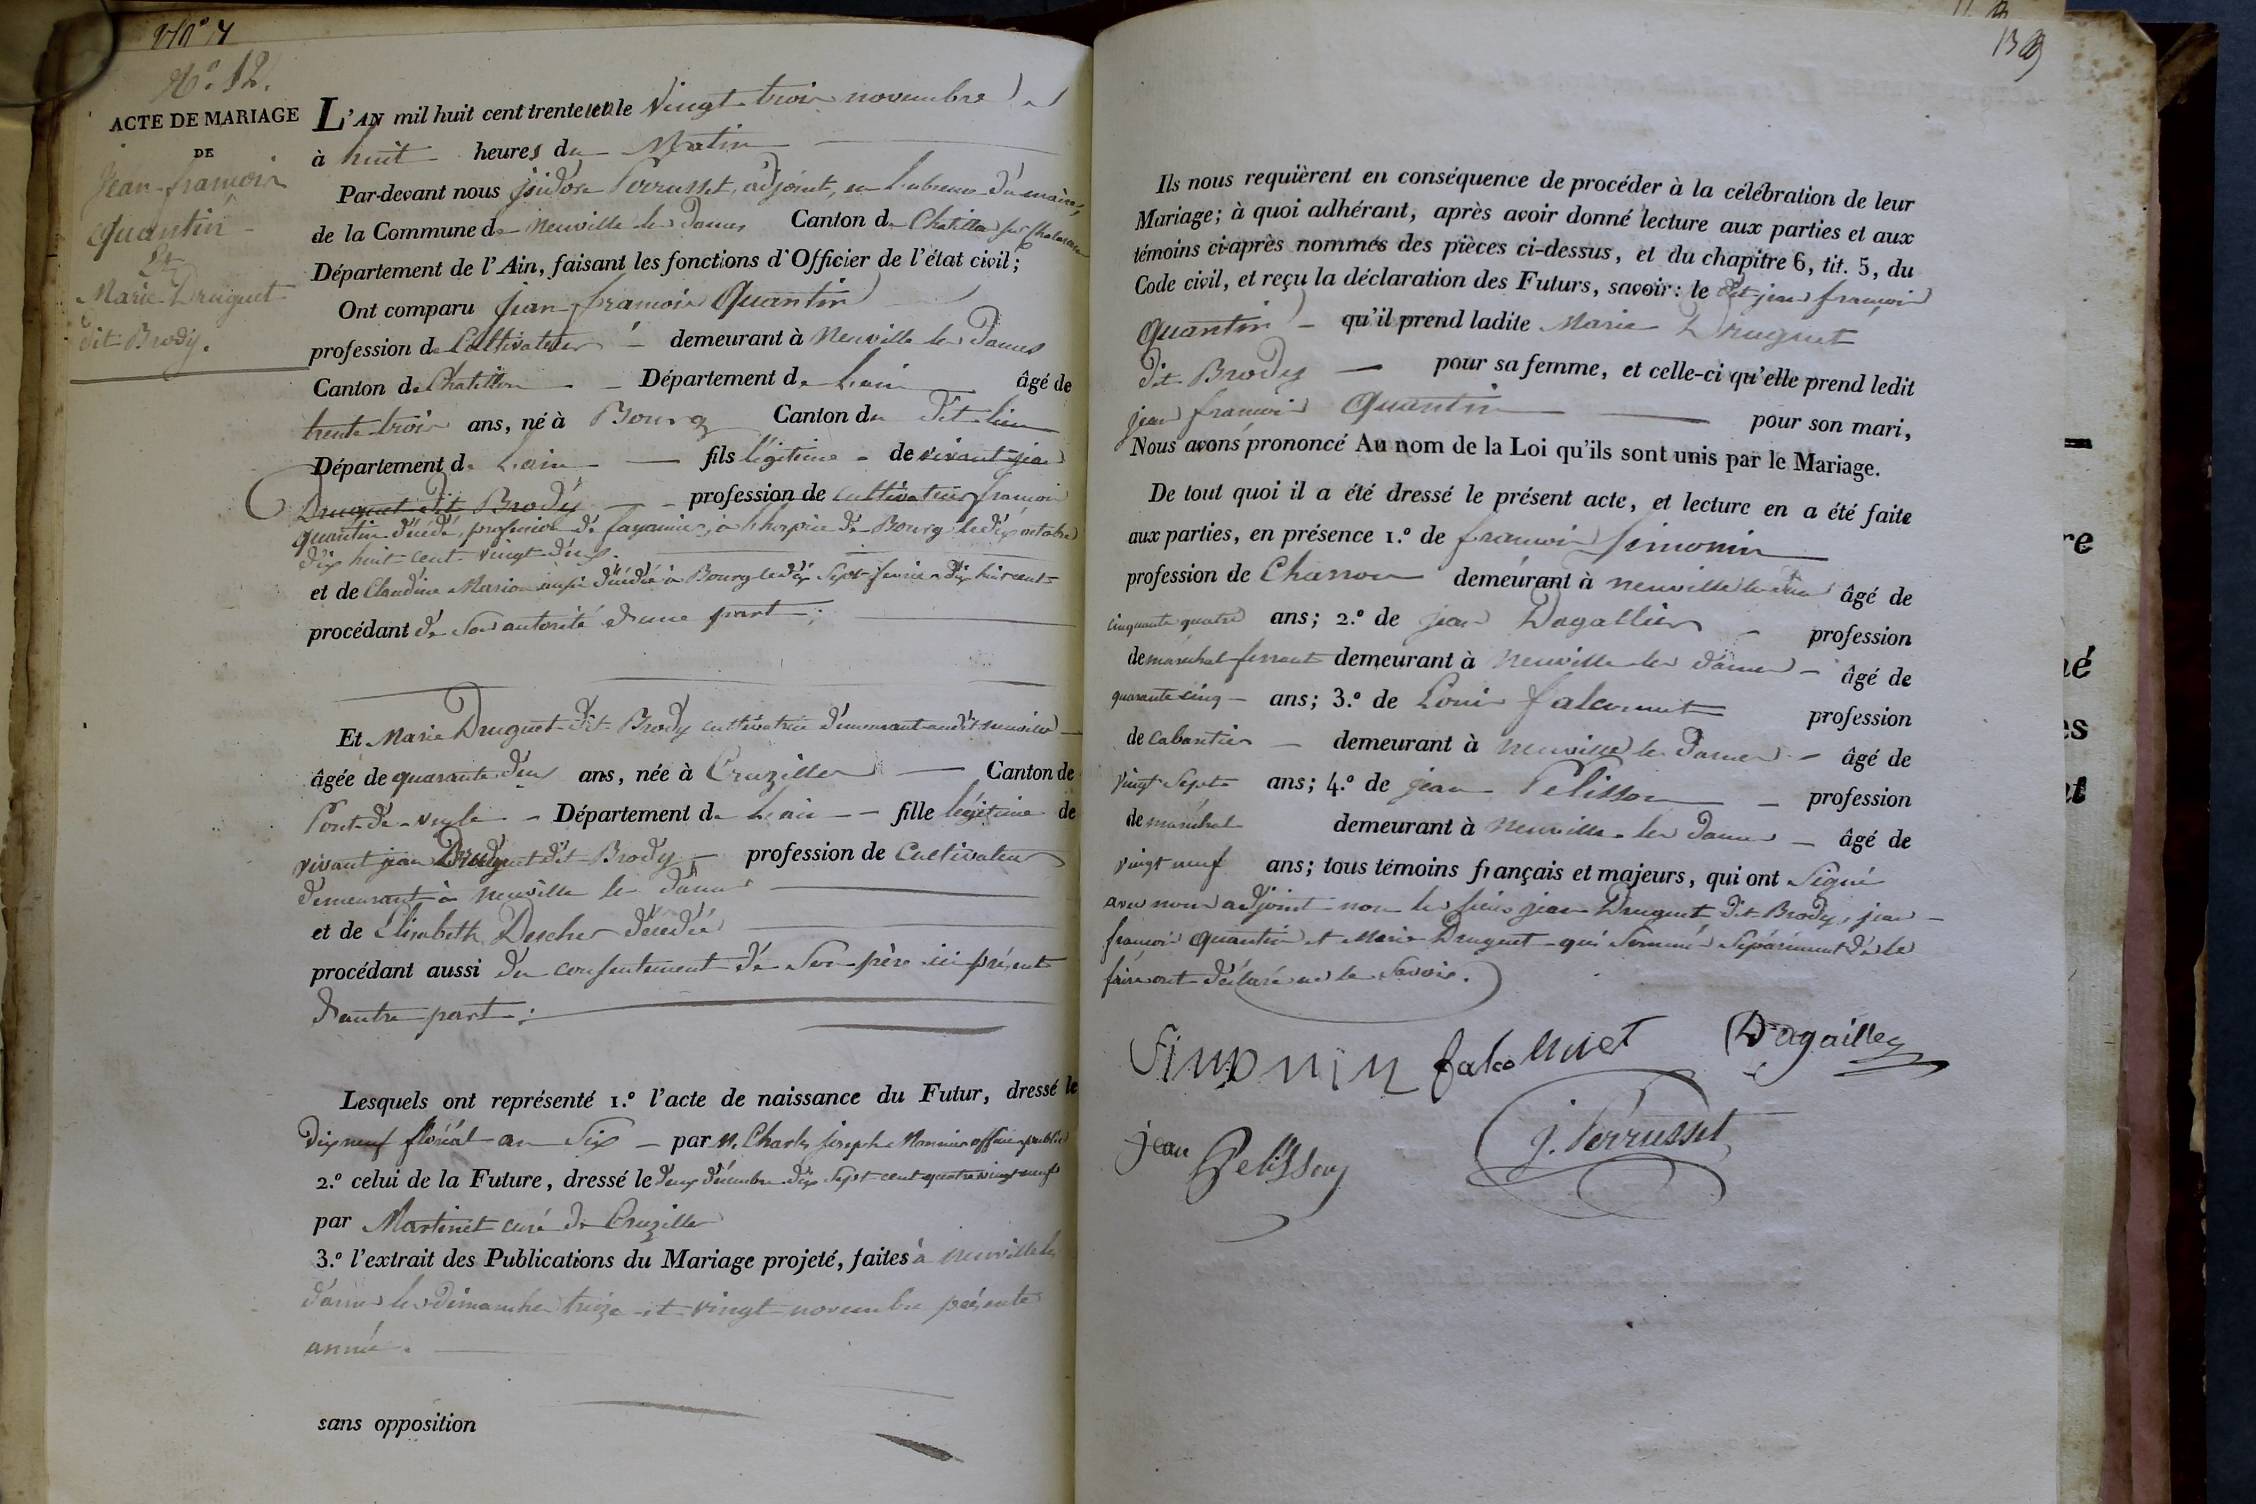 N° 12.
ACTE DE MARIAGE
DE
Jean-françois
Quantin
Et
Marie Druguet
dit Brody.
L'AN mil huit cent trente un le Vingt trois novembre
à huit heures du Matin
Par-devant nous isidore Perrusset, adjoint, en l'absence du maire,
de la Commune de Neuville les Dames Canton de Chatillon sur Chalaronne
Département de l'Ain, faisant les fonctions d'Officier de l'état civil;
Ont comparu jean françois Quantin
profession de Cultivateur demeurant à Neuville les Dames
Canton de Chatillon Département de Lain âgé de
trente trois ans, né à Bourg Canton du dit lieu
Département de Lain fils légitime de vivant jean
Druguet dit Brody profession de cultivateur françois
quantin décédé, profession de fayancier, à l'hospice de Bourg le dix octobre
dix huit cent vingt deux.
et de Claudine Marion aussi décédée à Bourg le dix sept fevrier dix huit cent
procédant de son autorité d'une part;
Et Marie Druguet dit Brody cultivatrice demeurant audit neuville
âgée de quarante deux ans, née à Cruzilles Canton de
Pont-de-veyle Département de Lain fille légitime de
vivant jean Druguet dit Brody profession de Cultivateur
demeurant à neuville les dames
et de Elisabeth Descher décédée
procédant aussi du consentement de son père ici présent
d'autre part;
Lesquels ont représenté 1.° l'acte de naissance du Futur, dressé le
dix neuf floréal an six par M. Charles joseph Monnier officier public
2.° celui de la Future, dressé le deux décembre dix sept cent quatre vingt neuf
par Martinet curé de Cruzilles
3.° l'extrait des Publications du Mariage projeté, faites à neuville les
dames les dimanches treize et vingt novembre présente
année.
sans opposition
Ils nous requièrent en conséquence de procéder à la célébration de leur
Mariage; à quoi adhérant, après avoir donné lecture aux parties et aux
témoins ci-après nommés des pièces ci-dessus, et du chapitre 6, tit. 5, du
Code civil, et reçu la déclaration des Futurs, savoir: le dit jean françois
Quantin qu'il prend ladite Marie Druguet
dit Brody pour sa femme, et celle-ci qu'elle prend ledit
jean françois Quantin pour son mari,
Nous avons prononcé Au nom de la Loi qu'ils sont unis par le Mariage.
De tout quoi il a été dressé le présent acte, et lecture en a été faite
aux parties, en présence 1.° de françois Simonin
profession de Charron demeurant à neuville les dames âgé de
cinquante quatre ans; 2.° de jean Dagallier profession
de maréchal ferrant demeurant à Neuville les dames âgé de
quarante cinq ans; 3.° de Louis falconnet profession
de cabartier demeurant à neuville les dames âgé de
vingt sept ans; 4.° de jean Pelisson profession
de maréchal demeurant à Neuville les dames âgé de
vingt neuf ans; tous témoins français et majeurs, qui ont signé
avec nous adjoint non les sieurs jean Druguet dit Brody, jean
françois quantin et Marie Druguet qui sommés séparément de le
faire ont déclaré ne le savoir.
Simonin falconnet Dagailler
jean Pelisson J. Perrusset